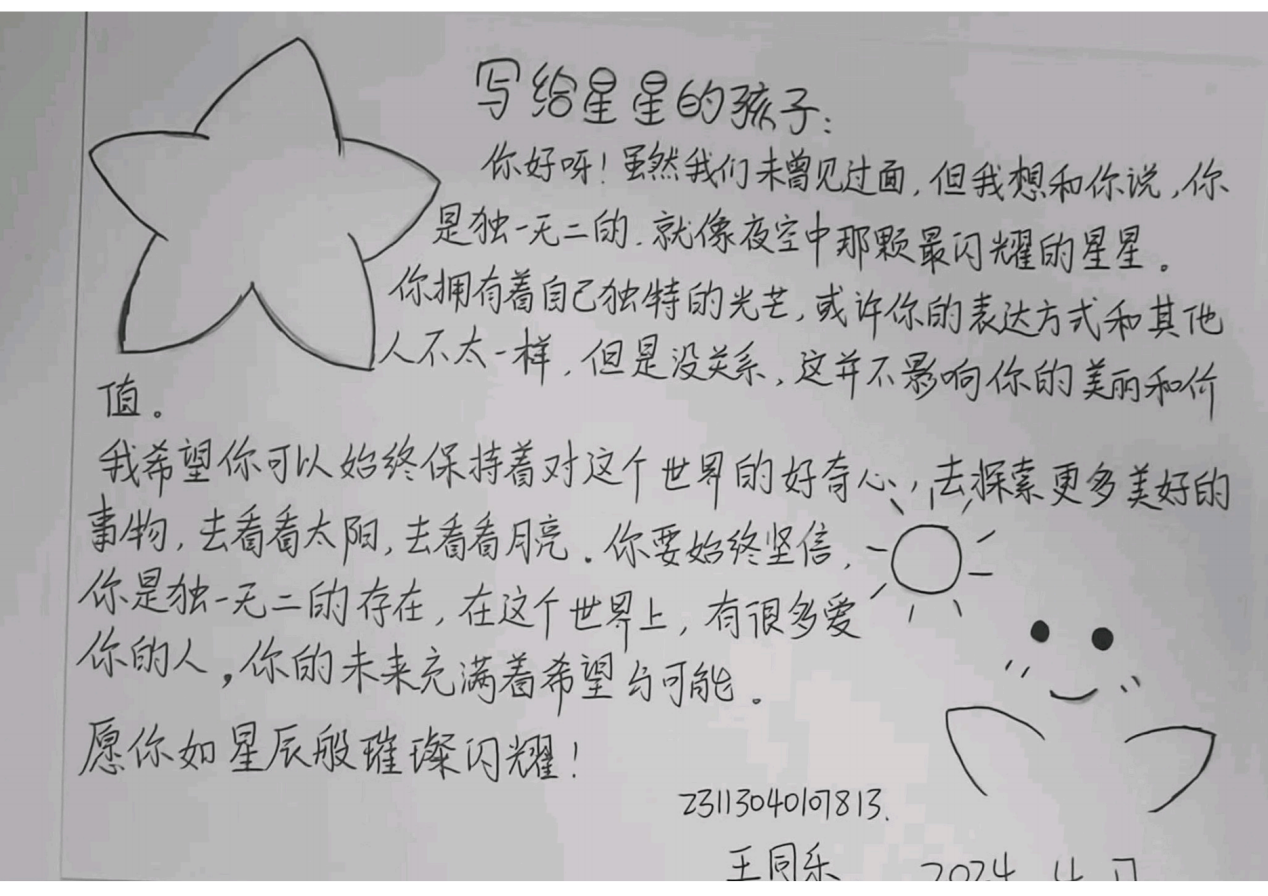 写给星星的孩子：
你好呀！虽然我们未曾见过面，但我想和你说，你
是独一无二的．就像夜空中那颗最闪耀的星星。
你拥有着自己独特的光芒，或许你的表达方式和其他
人不太一样，但是没关系，这并不影响你的美丽和价
值。
我希望你可以始终保持着对这个世界的好奇心，去探索更多美好的
事物，去看看太阳，去看看月亮．你要始终坚信，
你是独一无二的存在，在这个世界上，有很多爱
你的人，你的未来充满着希望与可能．
愿你如星辰般璀璨闪耀！
23113040107813.
王同乐
2024